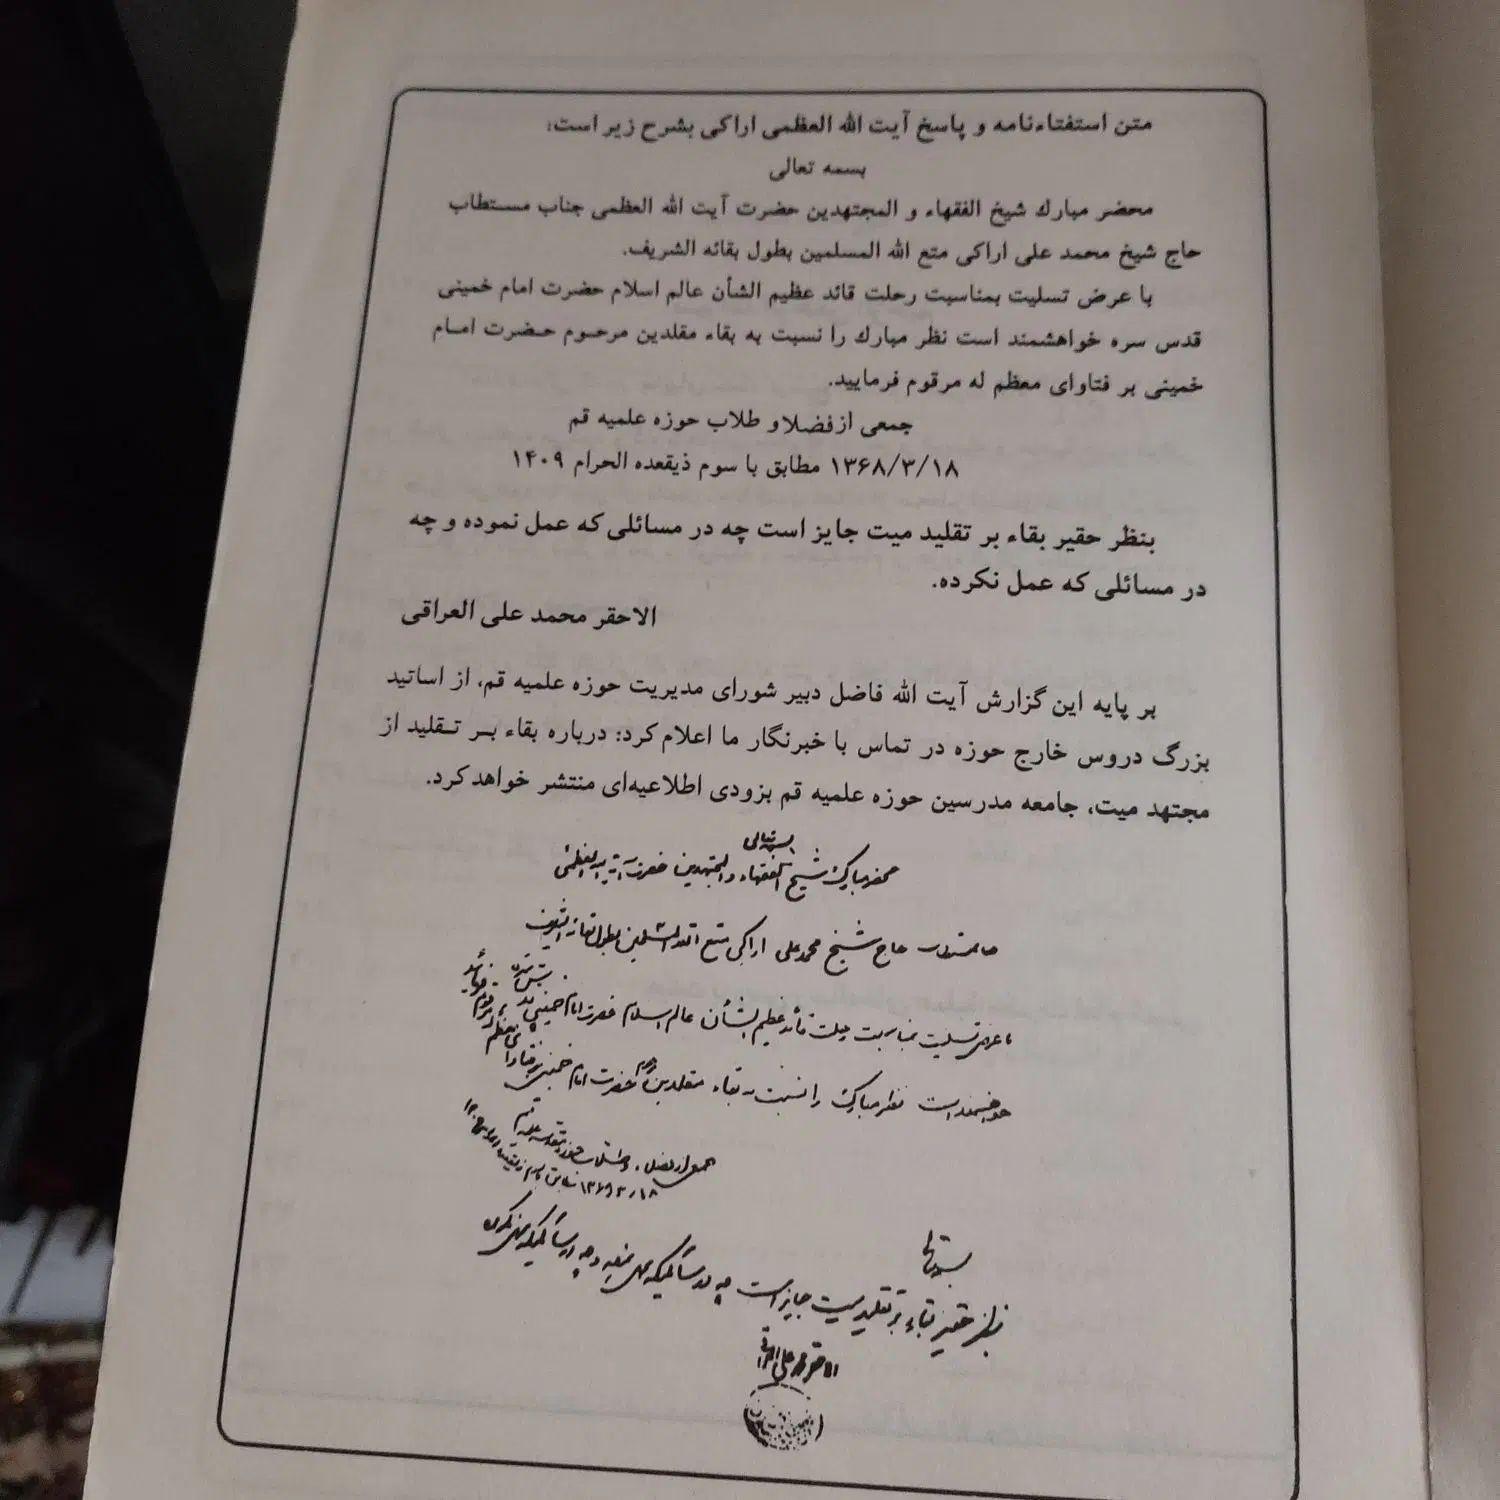 متن استفتاءنامه و پاسخ آیت الله العظمی اراکی بشرح زیر است:
بسمه تعالی
محضر مبارك شیخ الفقهاء و المجتهدین حضرت آیت الله العظمی جناب مستطاب
حاج شیخ محمد علی اراکی متع الله المسلمین بطول بقائه الشریف.
با عرض تسلیت بمناسبت رحلت قائد عظیم الشأن عالم اسلام حضرت امام خمینی
قدس سره خواهشمند است نظر مبارك را نسبت به بقاء مقلدین مرحوم حضرت امام
خمینی بر فتاوای معظم له مرقوم فرمایید.
جمعی از فضلا و طلاب حوزه علمیه قم
۱۳۶۸/۳/۱۸ مطابق با سوم ذیقعده الحرام ۱۴۰۹
بنظر حقیر بقاء بر تقلید میت جایز است چه در مسائلی که عمل نموده و چه
در مسائلی که عمل نکرده.
الاحقر محمد علی العراقی
بر پایه این گزارش آیت الله فاضل دبیر شورای مدیریت حوزه علمیه قم، از اساتید
بزرگ دروس خارج حوزه در تماس با خبرنگار ما اعلام کرد: درباره بقاء بر تقلید از
مجتهد میت، جامعه مدرسین حوزه علمیه قم بزودی اطلاعیه‌ای منتشر خواهد کرد.
بسمه تعالی
محضر مبارک شیخ الفقهاء والمجتهدین حضرت آیت الله العظمی
حاج شیخ محمد علی اراکی متع الله المسلمین بطول بقائه الشریف
با عرض تسلیت بمناسبت رحلت قائد عظیم الشأن عالم اسلام حضرت امام خمینی قدس سره
خواهشمند است نظر مبارک را نسبت به بقاء مقلدین مرحوم حضرت امام خمینی بر فتاوای معظم له مرقوم فرمائید
جمعی از فضلاء و طلاب حوزه علمیه قم
بسمه تعالی
بنظر حقیر بقاء بر تقلید میت جایز است چه در مسائلیکه عمل نموده و چه در مسائلیکه عمل نکرده
الاحقر محمد علی العراقی